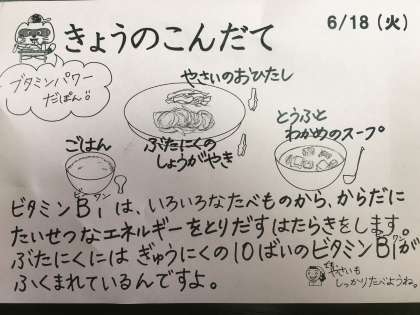 きょうのこんだて
6/18（火）
ブタミンパワー
だぽん!!
やさいのおひたし
ぶたにくの
しょうがやき
ごはん
とうふと
わかめのスープ
ビタミンB1ワンは、いろいろなたべものから、からだに
たいせつなエネルギーをとりだすはたらきをします。
ぶたにくには ぎゅうにくの10ばいのビタミンB1ワンが
ふくまれているんですよ。
やさいも
しっかりたべようね。